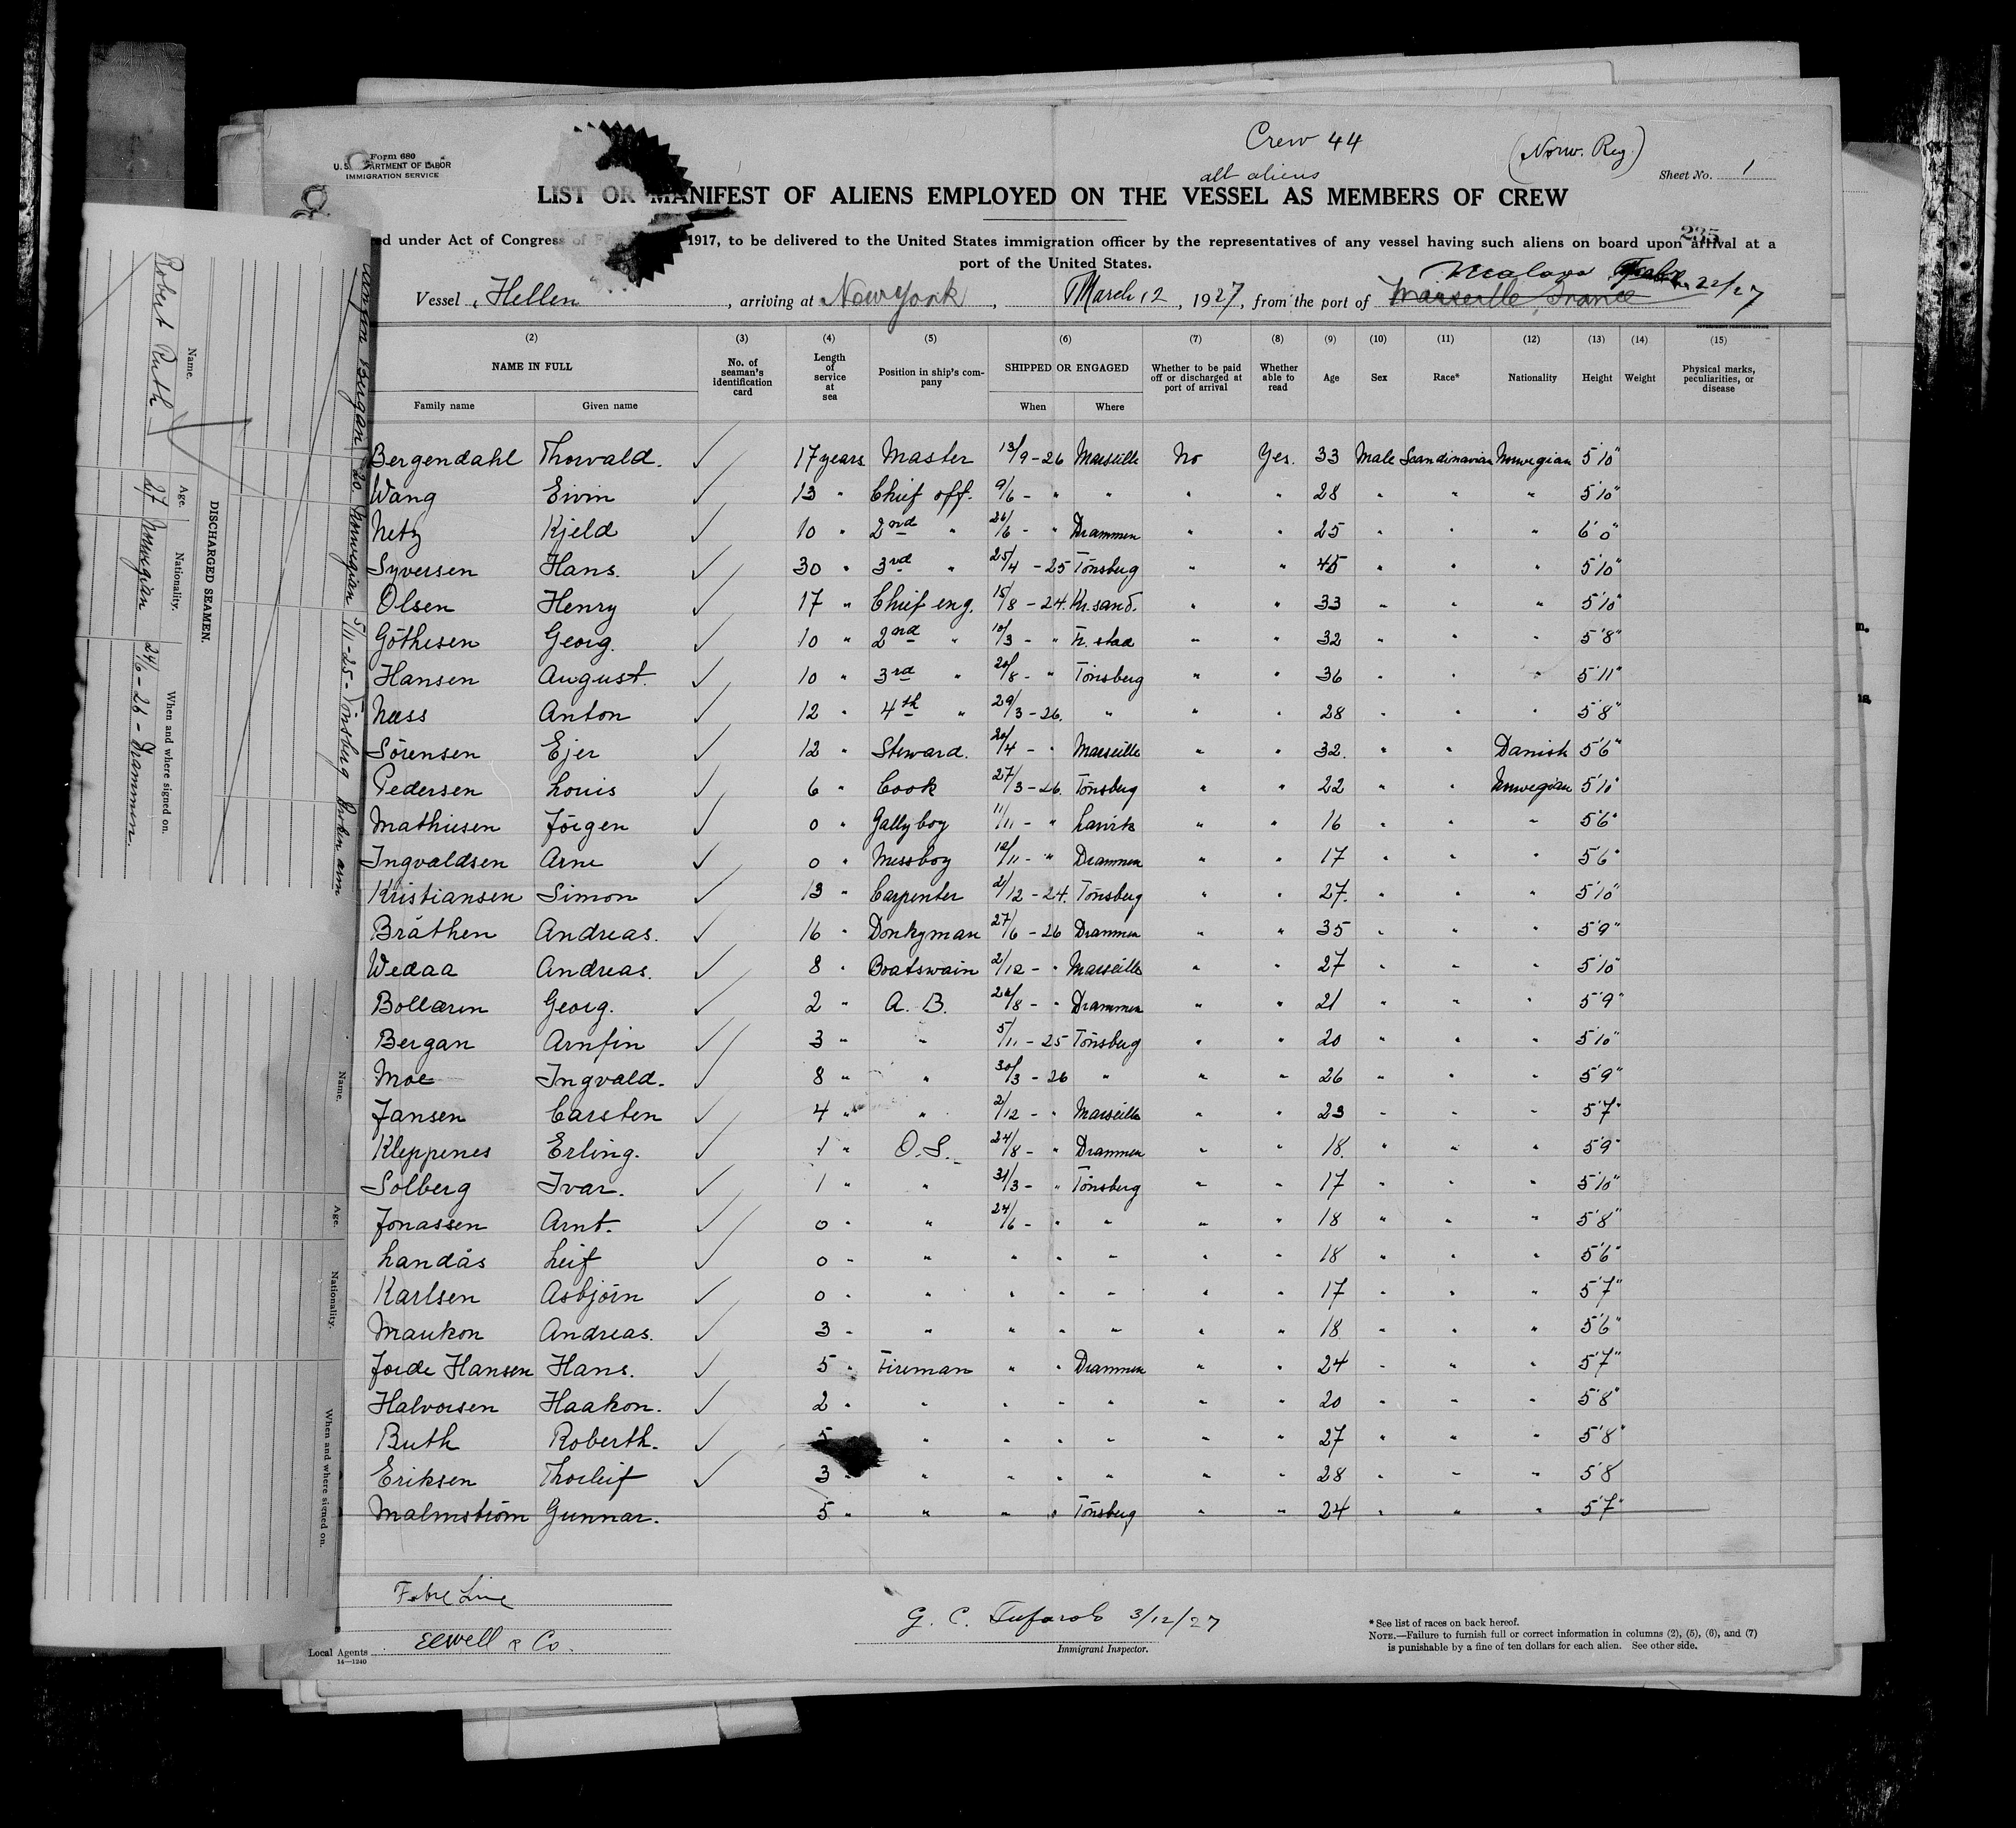 Crew 44
(Norw. Reg.)
all aliens
Form 680
U. S. DEPARTMENT OF LABOR
IMMIGRATION SERVICE
Sheet No. 1
LIST OR MANIFEST OF ALIENS EMPLOYED ON THE VESSEL AS MEMBERS OF CREW
235
ed under Act of Congress of 1917, to be delivered to the United States immigration officer by the representatives of any vessel having such aliens on board upon arrival at a
port of the United States.
Malaga 22/27
Vessel Hellen, arriving at New York, March 12, 1927, from the port of Marseille France
(2) (3) (4) (5) (6) (7) (8) (9) (10) (11) (12) (13) (14) (15)
NAME IN FULL No. of seaman's identification card Length of service at sea Position in ship's company SHIPPED OR ENGAGED Whether to be paid off or discharged at port of arrival Whether able to read Age Sex Race* Nationality Height Weight Physical marks, peculiarities, or disease
Family name Given name When Where
Bergendahl Thorvald. ✓ 17 years Master 13/9-26 Marseille No Yes. 33 Male Scandinavian Norwegian 5'10"
Wang Eivin ✓ 13 " Chief off. 9/6- " " " " 28 " " " 5'10"
Netz Kjeld ✓ 10 " 2nd " 26/6- " Drammen " " 25 " " " 6'0"
Syversen Hans. ✓ 30 " 3rd " 25/4-25 Tönsberg " " 45 " " " 5'10"
Olsen Henry ✓ 17 " Chief eng. 15/8-24. Kr.sand. " " 33 " " " 5'10"
Göthesen Georg. ✓ 10 " 2nd " 10/3- " Fr. stad " " 32 " " " 5'8"
Hansen August. ✓ 10 " 3rd " 20/8- " Tönsberg " " 36 " " " 5'11"
Næss Anton ✓ 12 " 4th " 29/3-26. " " " 28 " " " 5'8"
Sörensen Ejer ✓ 12 " Steward. 20/4- " Marseille " " 32. " " Danish 5'6"
Pedersen Louis ✓ 6 " Cook 27/3-26. Tönsberg " " 22 " " Norwegian 5'10"
Mathiesen Jörgen ✓ 0 " Gallyboy 11/11- " Larvik " " 16 " " " 5'6"
Ingvaldsen Arne ✓ 0 " Messboy 12/11- " Drammen " " 17 " " " 5'6"
Kristiansen Simon ✓ 13 " Carpenter 2/12-24. Tönsberg " " 27. " " " 5'10"
Bråthen Andreas. ✓ 16 " Donkyman 27/6-26 Drammen " " 35 " " " 5'9"
Wedaa Andreas. ✓ 8 " Boatswain 2/12- " Marseille " " 27 " " " 5'10"
Bollæren Georg. ✓ 2 " A. B. 24/8- " Drammen " " 21 " " " 5'9"
Bergan Arnfin ✓ 3 " " 5/11-25 Tönsberg " " 20 " " " 5'10"
Moe Ingvald. ✓ 8 " " 30/3-26 " " " 26 " " " 5'9"
Jansen Carsten ✓ 4 " " 2/12- " Marseille " " 23 " " " 5'7"
Kleppenes Erling. ✓ 1 " O.S. 24/8- " Drammen " " 18. " " " 5'9"
Solberg Ivar. ✓ 1 " " 31/3- " Tönsberg " " 17 " " " 5'10"
Jonassen Arnt. ✓ 0 " " 24/6- " " " " 18 " " " 5'8"
Landås Leif ✓ 0 " " " " " " " 18 " " " 5'6"
Karlsen Asbjörn ✓ 0 " " " " " " " 17 " " " 5'7"
Maukon Andreas. ✓ 3 " " " " " " " 18 " " " 5'6"
Jorde Hansen Hans. ✓ 5 " Fireman " " Drammen " " 24 " " " 5'7"
Halvorsen Haakon. ✓ 2 " " " " " " " 20 " " " 5'8"
Buth Roberth. ✓ 5 " " " " " " 27 " " " 5'8"
Eriksen Thorleif ✓ 3 " " " " " " " 28 " " " 5'8
Malmström Gunnar. 5 " " " " Tönsberg " " 24 " " " 5'7"
Fabre Line
Elwell & Co.
Local Agents
14—1240
G. C. 3/12/27
Immigrant Inspector.
* See list of races on back hereof.
NOTE.—Failure to furnish full or correct information in columns (2), (5), (6), and (7)
is punishable by a fine of ten dollars for each alien. See other side.
DISCHARGED SEAMEN.
Name. Age. Nationality. When and where signed on.
Robert Ruth 27 Norwegian 24/6-26-Drammen.
Bergan 20 Norwegian 5/11-25-Tönsberg Broken arm
Name. Age. Nationality. When and where signed on.